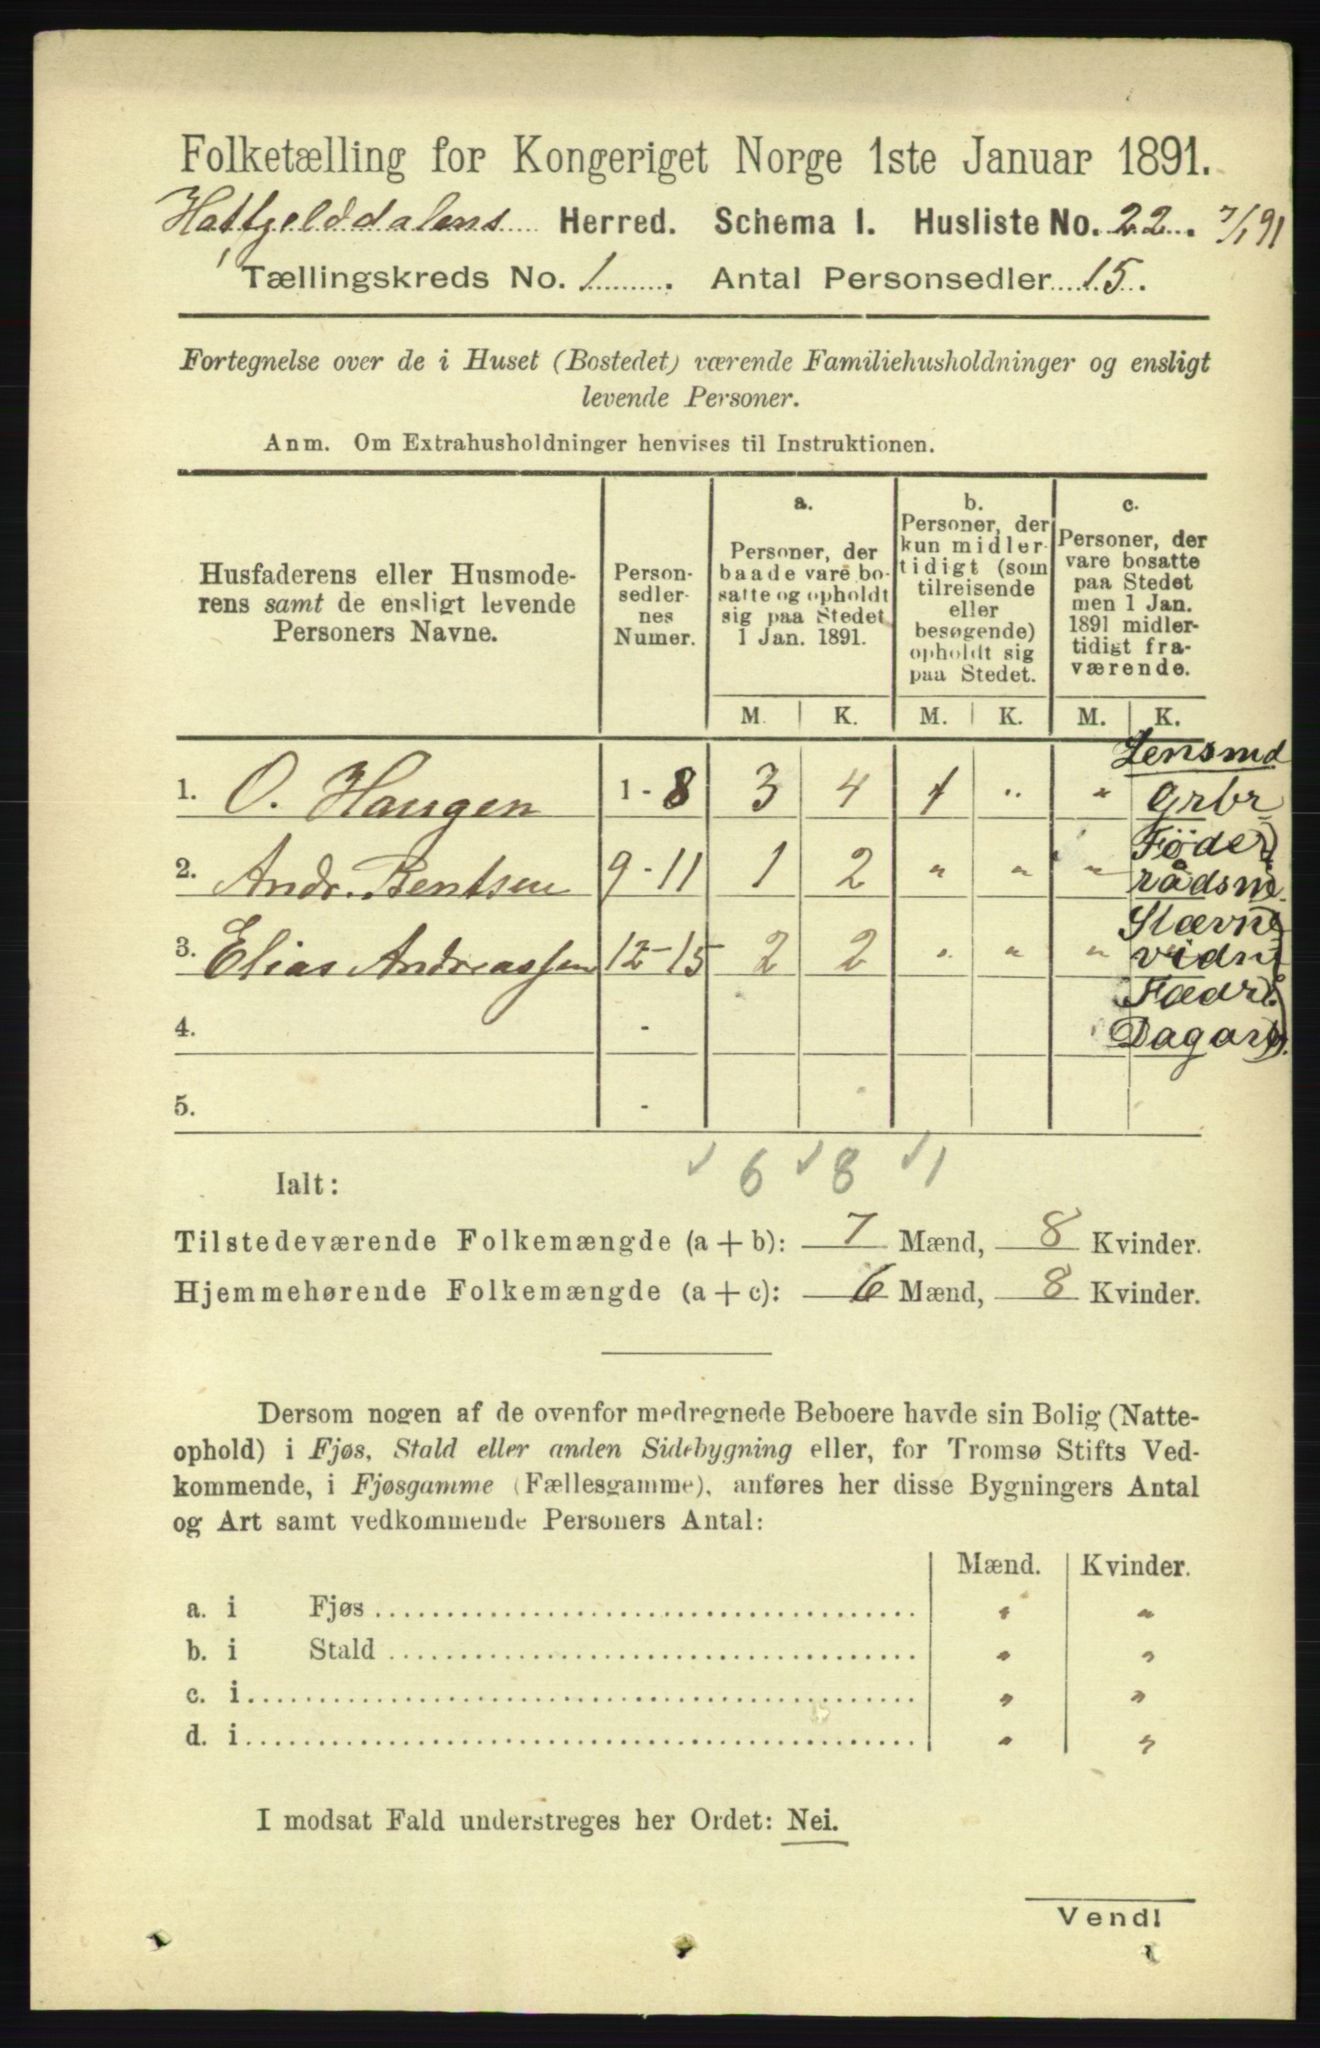 Folketælling for Kongeriget Norge 1ste Januar 1891.
Hatfjelddalens Herred. Schema I. Husliste No. 22. 7/1 91
Tællingskreds No. 1. Antal Personsedler 15.
Fortegnelse over de i Huset (Bostedet) værende Familiehusholdninger og ensligt
levende Personer.
Anm. Om Extrahusholdninger henvises til Instruktionen.
Husfaderens eller Husmode-
rens samt de ensligt levende
Personers Navne.
Person-
sedler-
nes
Numer.
a.
Personer, der
baade vare bo-
satte og opholdt
sig paa Stedet
1 Jan. 1891.
b.
Personer, der
kun midler-
tidigt (som
tilreisende
eller
besøgende)
opholdt sig
paa Stedet.
c.
Personer, der
vare bosatte
paa Stedet
men 1 Jan.
1891 midler-
tidigt fra-
værende.
M. K. M. K. M. K.
1. O. Haugen 1 - 8 3 4 1 " " Lensmd
grbr
2. Andr. Bentsen 9 - 11 1 2 " " " Föder
rådsm
3. Elias Andreassen 12 - 15 2 2 " " " Stævne
vidn
Fædr.
4. - Dagarb.
5. -
6 8 1
Ialt:
Tilstedeværende Folkemængde (a + b): 7 Mænd, 8 Kvinder.
Hjemmehørende Folkemængde (a + c): 6 Mænd, 8 Kvinder.
Dersom nogen af de ovenfor medregnede Beboere havde sin Bolig (Natte-
ophold) i Fjøs, Stald eller anden Sidebygning eller, for Tromsø Stifts Ved-
kommende, i Fjøsgamme (Fællesgamme), anføres her disse Bygningers Antal
og Art samt vedkommende Personers Antal:
Mænd. Kvinder.
a. i Fjøs " "
b. i Stald " "
c. i " "
d. i " "
I modsat Fald understreges her Ordet: Nei.
Vend!